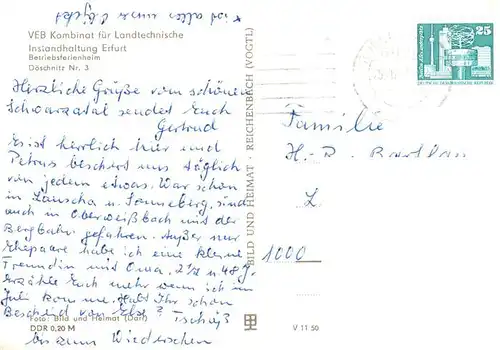 ist alles unser
VEB Kombinat für Landtechnische
Instandhaltung Erfurt
Betriebsferienheim
Döschnitz Nr. 3
Herzliche Grüße vom schönen
Schwarzatal sendet Euch
Gertrud
Es ist herrlich hier und
Petrus beschert uns täglich
von jedem etwas. War schon
in Lauscha u. Sonneberg, sind
auch in Oberweißbach mit der
Bergbahn gefahren. Außer nur
Ehepaare habe ich eine kleine
Freundin und Oma, 2½ u 48 J.
Erzähle Euch mehr wenn ich im
Juli komme. Habt Ihr schon
Bescheid von Else? Tschüß
bis zum Wiedersehen
Foto: Bild und Heimat (Darr)
DDR 0,20 M
BILD UND HEIMAT · REICHENBACH (VOGTL)
V 11 50
25
Familie
H.
L
1000